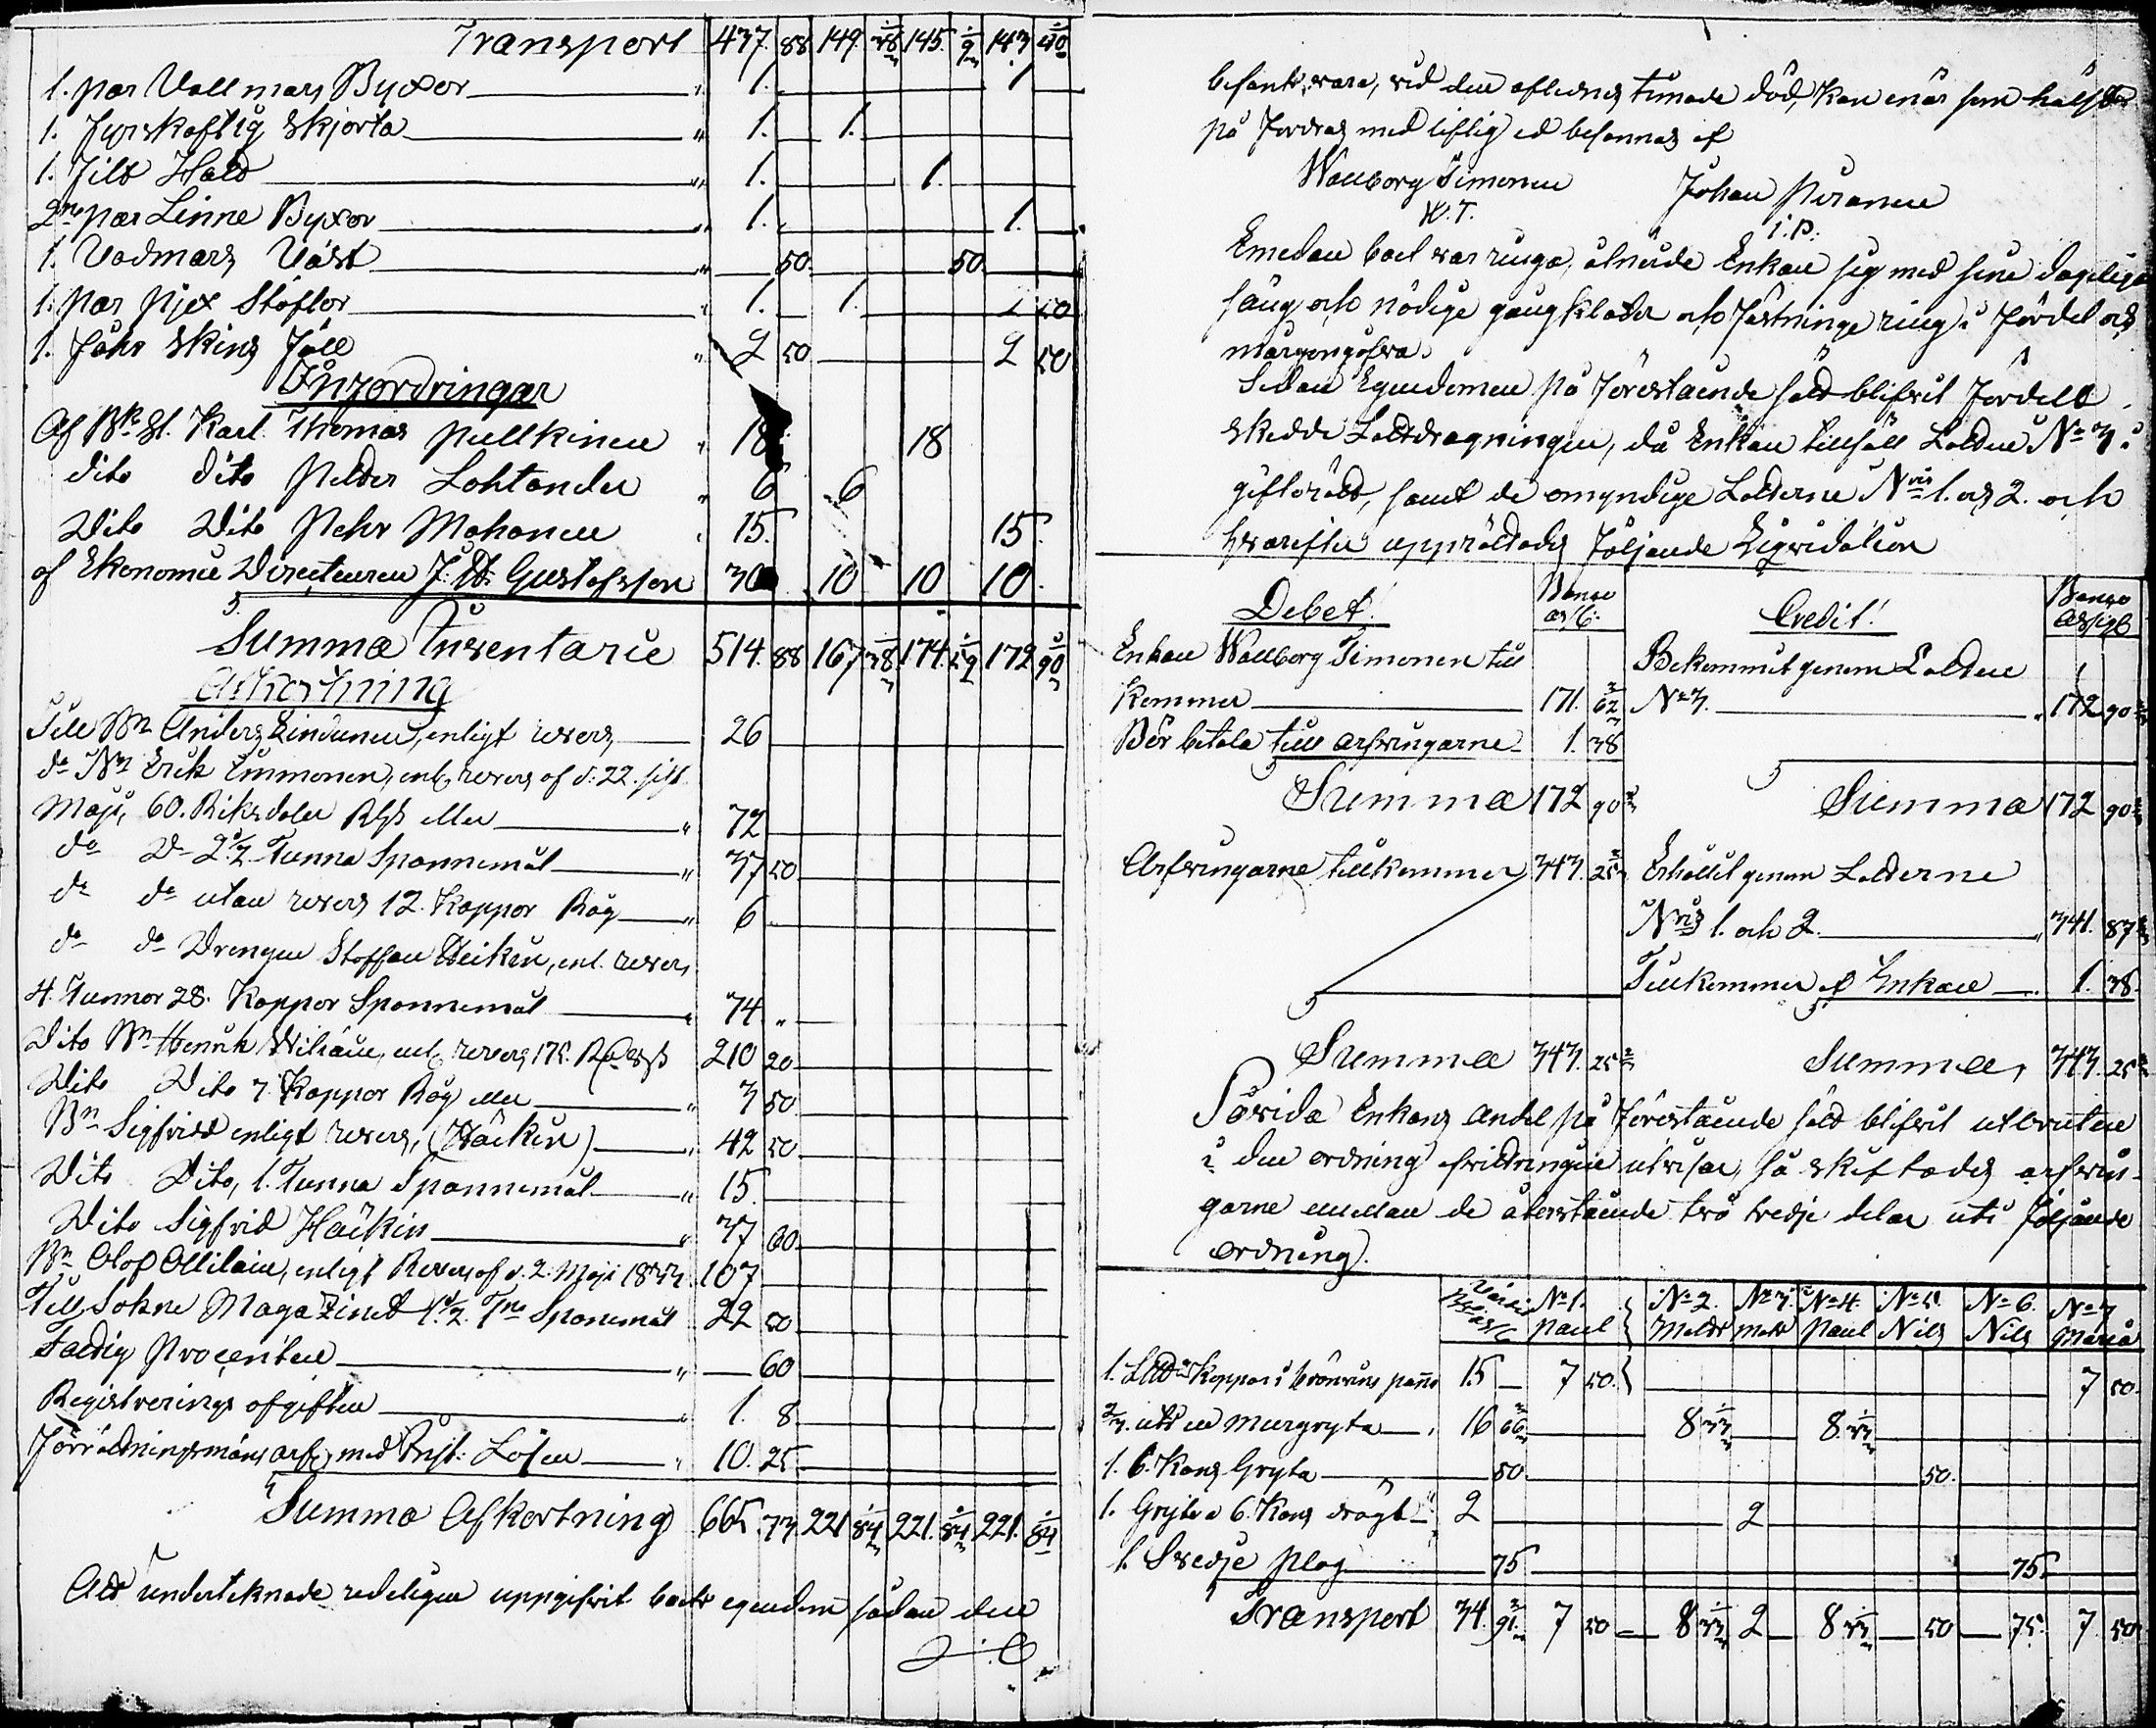 Transport 437. 88 149. 38 1/3 145. 9 1/3 143. 40 1/3
1. par Vallmars Byxor " 1. 1
1. Fyrskaftig Skjorta " 1. 1.
1. Filt Hatt " 1. 1.
2ne par Linne Byxor " 1. " 1.
1. Vadmars Väst " 50. 50.
1. par Pjex Stöflor 1. 1.
1. Fåhr Skins Fäll " 2 50 2 50
Infordringar
Af Bk St. Karl Thomas Pullkinen " 18 18
dito dito Petter Lohtander " 6 6
Dito Dito Pehr Mohonen 15. 15.
af Ekonomie Directeuren J. Gustafsson 30 10 10 10.
Summa Inventarie 514. 88 167 38 1/3 174. 59 1/3 172 90 1/3
Afkortning
Till Bn Anders Lindunen, enligt revers 26
do Bn Erik Immonen, enl. revers af d. 22. sist
Maji, 60. Riksdaler Rgs eller " 72
do Do 2 1/2 Tunna Spannemål " 37 50
do do utan revers 12. Kappor Råg " 6
do do Drengen Staffan Heikin, enl. revers
4. Tunnor 28. Kappor Spannemål " 74 "
Dito Bn Henrik Wiliain, enl. revers 175. 210 20
Dito Dito 7 Kappor Råg eller " 3 50
Bn Sigfrid enligt revers, (Häikin) " 42 50
Dito Dito, 1. Tunna Spannemål " 15.
Dito Sigfrid Häikin " 37 60
Bn Olof Ollilain, enligt Revers af d. 2. Maji 1833. 107
Till Sokne Magazinet 1 1/2 Tna Spanemål 22 50
Fattig Procenten " 60
Registrerings afgiften " 1. 8
Förrättningsmäns arf, med Lösen " 10. 25
Summa Afkortning 665. 73 221 84 1/3 221. 84 1/3 221. 84 1/3
Alt undertecknade redeligen uppgifvit boets egendom sådan den
befants vara, vid den aflednes timade död, kan när som hälst
på fordras med liflig ed besannas af
Wallborg Timonen Johan Piranen
W. T. I. P.
Emedan boet var ringa, åtnöide Enkan sig med sine dageliga
säng och nödige gångkläder och Fästninge ring i Fördel och
morgongåfva.
Sedan Egendomen på förestående sätt blifvit fördelt
skedde Lottdragningen, då Enkan tillföll Lotten No 3 i
giftorätt, samt de omyndige Lotterne Nris 1. och 2. och
hvarefter upprättades följande Liqvidation
Debet! Banco Credit! Banco
Enkan Wallborg Timonen till Bekommit genom Lotten
kommer 171. 62 2/3 No 3. " 172 90 2/3
Bör betala till arfvingarne 1. 38
Summa 172 90 2/3 Summa 172 90 2/3
Arfvingarne tillkommer 343. 25 2/3 Erhållit genom Lotterne
Nris 1. och 2. " 341. 87 2/3
Tillkommer af Enkan 1. 38.
Summa 343. 25 2/3 Summa, 343. 25 2/3
Sävida Enkans andel på förestående sätt blifvit utbruten
i den ordning afvittringen utvisar, så skiftades arfvin-
garne emellan de återstående två tredje delar uti följande
ordning.
No 1. Paul No 2. Matts No 3. Matts No 4. Paul No 5. Nils No 6. Nils No 7 Maria
1. Kappars brännvins panna 15 7 50. 7 50.
2/3. uti en Murgryta 16 66 2/3 8 33 1/3 8 33 1/3
1. 6. Kans Gryta 50. 50.
1. Gryta a 6. Kans drägt " 2 2
1. Svedje Plog 75 75
Transport 34. 91 2/3 7 50 8 33 1/3 2 8 33 1/3 50 75. 7 50